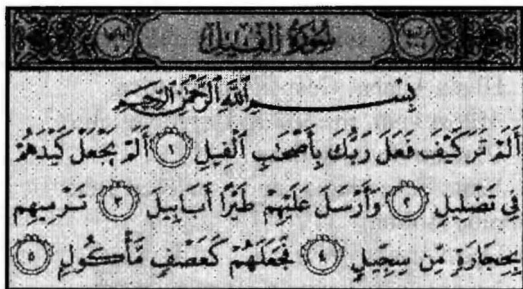 سُورَةُ الْفِيلِ
بِسْمِ اللَّهِ الرَّحْمَٰنِ الرَّحِيمِ
أَلَمْ تَرَ كَيْفَ فَعَلَ رَبُّكَ بِأَصْحَٰبِ ٱلْفِيلِ ١ أَلَمْ يَجْعَلْ كَيْدَهُمْ
فِي تَضْلِيلٍ ٢ وَأَرْسَلَ عَلَيْهِمْ طَيْرًا أَبَابِيلَ ٣ تَرْمِيهِم
بِحِجَارَةٍ مِّن سِجِّيلٍ ٤ فَجَعَلَهُمْ كَعَصْفٍ مَّأْكُولٍ ٥